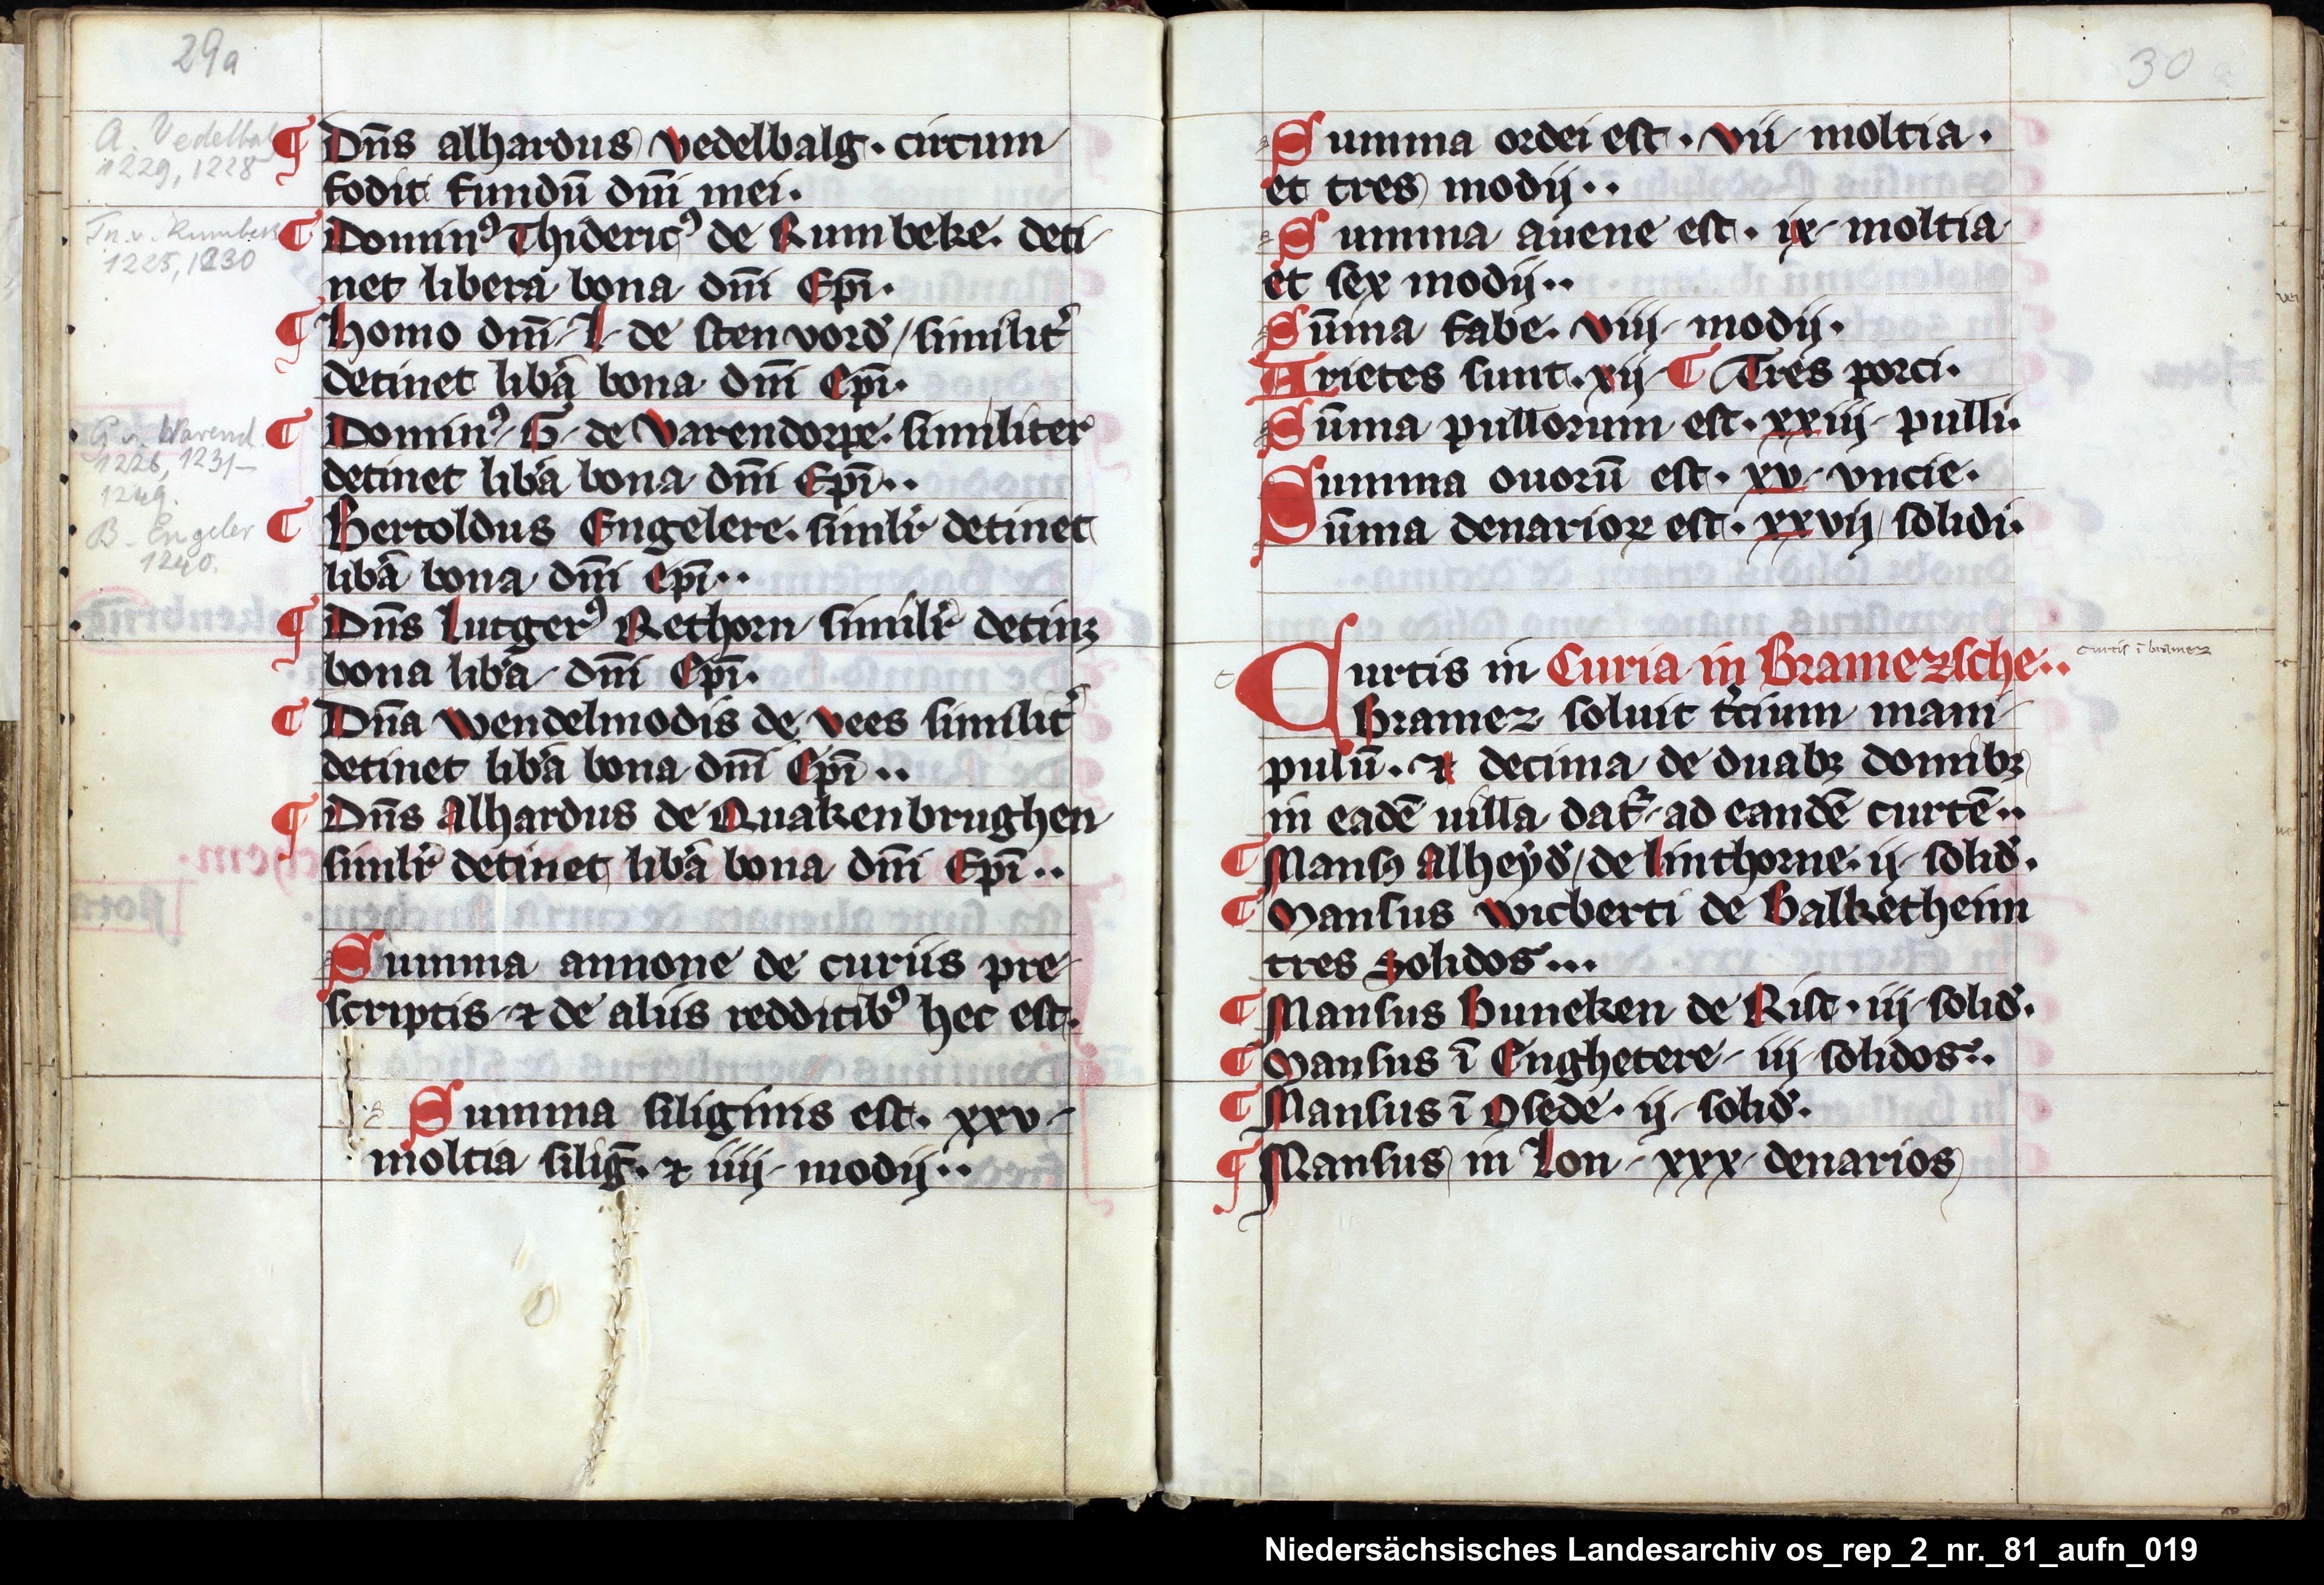 29a
A. Vedelbal
1229, 1228
¶ Dn̄s alhardus vedelbalg. circum
fodit fundū dn̄i mei.
Th. v. Rumbek
1225, 1230
¶ Domin⁹ Thideric⁹ de Rumbeke. deti
net libera bona dn̄i Ep̄i.
¶ Homo dn̄i I de stenvord' similit̾
detinet lib̾a bona dn̄i Ep̄i.
G. v. Warend.
1226, 1231–
1249.
¶ Domin⁹ G de Varendorpe. similiter
detinet lib̾a bona dn̄i Ep̄i..
B. Engeler
1240.
¶ Bertoldus Engelere. simil'r detinet
lib̾a bona dn̄i Ep̄i..
¶ Dn̄s Lutger⁹ Rethorn simil'r detinꝫ
bona lib̾a dn̄i Ep̄i.
¶ Dn̄a Wendelmodis de vees similit̾
detinet lib̾a bona dn̄i Ep̄i..
¶ Dn̄s Alhardus de Quakenbrughen
simil'r detinet lib̾a bona dn̄i Ep̄i..
Summa annone de curiis pre
scriptis ⁊ de aliis redditib⁹ hec est.
Summa siliginis est. xxv
moltia silig̅. ⁊ iiij modij..
30
Summa ordei est. vii moltia.
et tres modij..
Summa auene est. ix moltia
et sex modij..
Sūma fabe. viij modij.
Arietes sunt. xij ¶ Tres porci.
Sūma pullorum est. xxiij pulli.
Summa ouorū est. xv vncie.
Sūma denarioꝝ est. xxvij solidi.
Curtis in Curia in Bramezsche..
curtis ī bramez
Bramez soluit t̾cium mani
pulū. ⁊ decima de duabꝫ domibꝫ
in eadē uilla dat̾ ad eandē curtē..
¶ Mansꝰ Alheyd' de linthorne. ij solid'.
¶ Mansus Wicberti de Balketheim
tres solidos...
¶ Mansus Huneken de Rist. iij solid'.
¶ Mansus ī Enghetere iij solidos..
¶ Mansus ī Osede. ij solid'.
¶ Mansus in Lon xxx denarios
Niedersächsisches Landesarchiv os_rep_2_nr._81_aufn_019